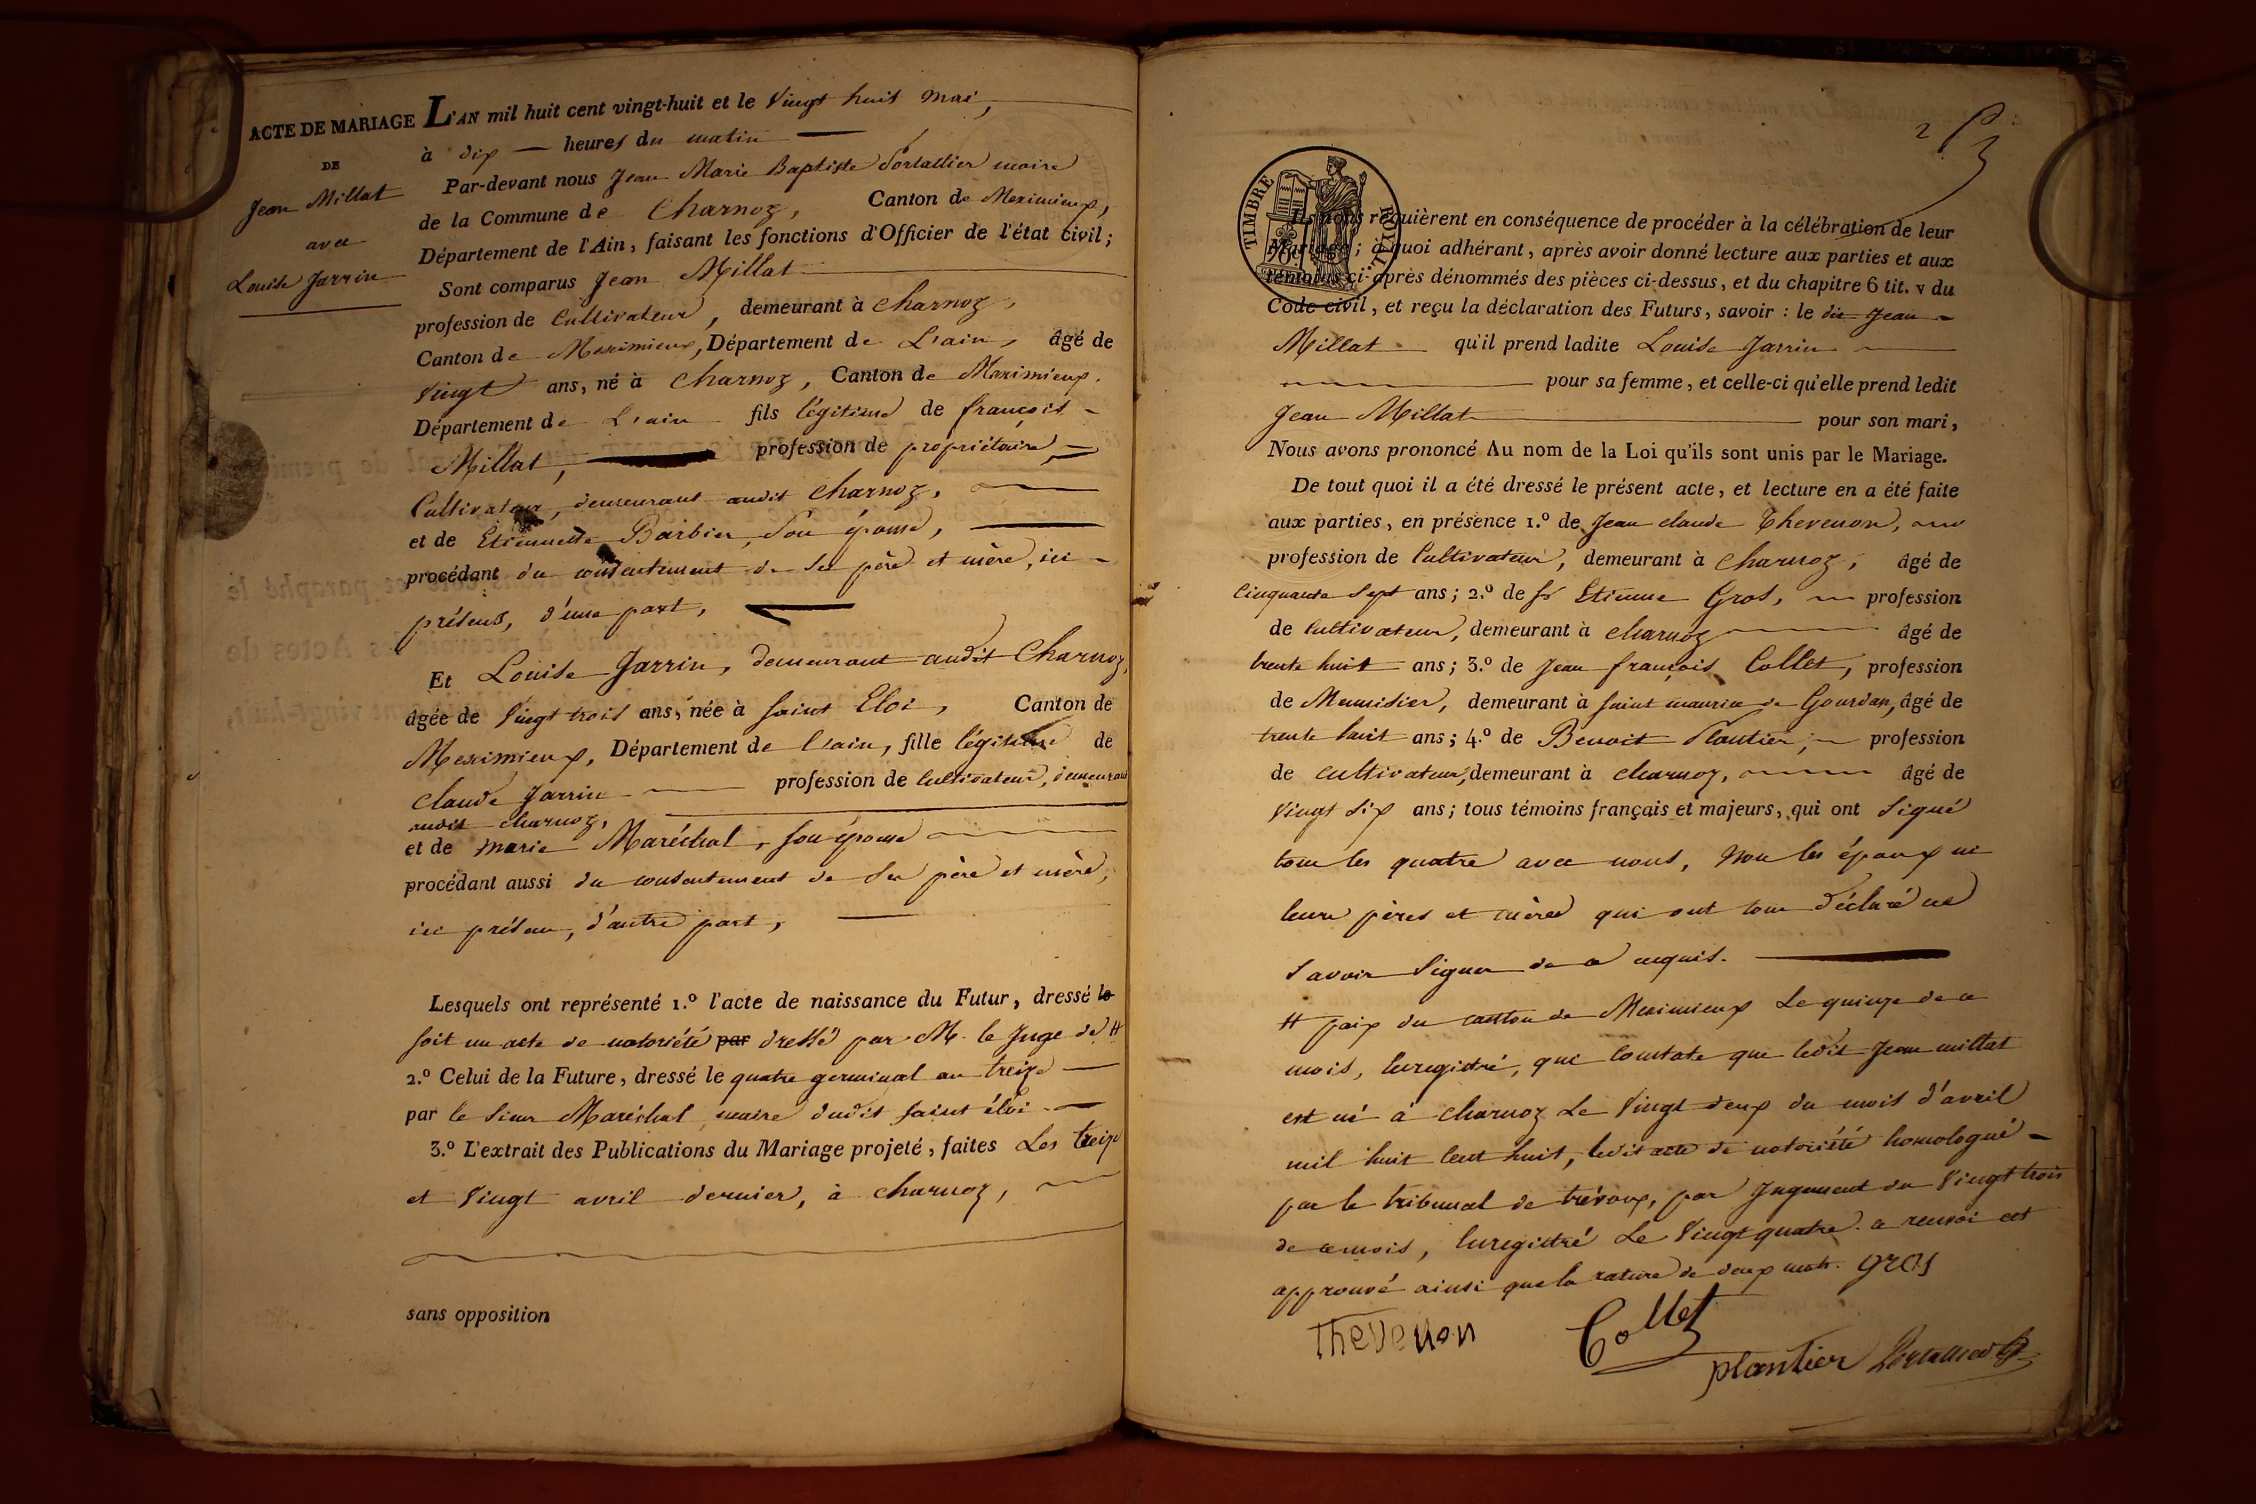 ACTE DE MARIAGE
DE
Jean Millat
avec
Louise Jarrin
L'AN mil huit cent vingt-huit et le Vingt huit mai,
à dix heures du matin
Par-devant nous Jean Marie Baptiste Portallier maire
de la Commune de Charnoz, Canton de Meximieux,
Département de l'Ain, faisant les fonctions d'Officier de l'état civil;
Sont comparus Jean Millat
profession de Cultivateur, demeurant à Charnoz,
Canton de Meximieux, Département de L'ain, âgé de
Vingt ans, né à Charnoz, Canton de Meximieux,
Département de L'ain fils légitime de françois
Millat, profession de propriétaire,
Cultivateur, demeurant audit Charnoz,
et de Etiennette Barbier, son épouse,
procédant du consentement de ses père et mère, ici
présens, d'une part,
Et Louise Jarrin, demeurant audit Charnoz,
âgée de Vingt trois ans, née à saint Eloi, Canton de
Meximieux, Département de l'ain, fille légitime de
Claude Jarrin profession de Cultivateur, demeurant
audit charnoz,
et de marie Maréchal, son épouse
procédant aussi du consentement de ses père et mère,
ici présens, d'autre part,
Lesquels ont représenté 1.º l'acte de naissance du Futur, dressé le
soit un acte de notoriété par dressé par M. le Juge de #
2.º Celui de la Future, dressé le quatre germinal an treize
par le sieur Maréchal maire dudit saint éloi
3.º L'extrait des Publications du Mariage projeté, faites Les treize
et Vingt avril dernier, à charnoz,
sans opposition
2
TIMBRE ROYAL
Ils nous requièrent en conséquence de procéder à la célébration de leur
Mariage; à quoi adhérant, après avoir donné lecture aux parties et aux
témoins ci-après dénommés des pièces ci-dessus, et du chapitre 6 tit. v du
Code civil, et reçu la déclaration des Futurs, savoir : le dit Jean
Millat qu'il prend ladite Louise Jarrin
pour sa femme, et celle-ci qu'elle prend ledit
Jean Millat pour son mari,
Nous avons prononcé Au nom de la Loi qu'ils sont unis par le Mariage.
De tout quoi il a été dressé le présent acte, et lecture en a été faite
aux parties, en présence 1.º de Jean claude Thevenon,
profession de Cultivateur, demeurant à Charnoz, âgé de
Cinquante sept ans; 2.º de sr Etienne Gros, profession
de Cultivateur, demeurant à charnoz âgé de
trente huit ans; 3.º de Jean françois Collet, profession
de Menuisier, demeurant à saint maurice de Gourdan, âgé de
trente huit ans; 4.º de Benoit Plantier, profession
de cultivateur, demeurant à charnoz, âgé de
Vingt six ans; tous témoins français et majeurs, qui ont signé
tous les quatre avec nous, Non les époux ni
leurs pères et mères qui ont tous déclaré ne
savoir signer de ce requis.
# paix du canton de Meximieux Le quinze de ce
mois, enregistré, qui Constate que ledit Jean millat
est né à charnoz Le Vingt deux du mois d'avril
mil huit Cent huit, ledit acte de notoriété homologué
par le tribunal de trévoux, par Jugement du Vingt trois
de ce mois, Enregistré Le Vingt quatre. ce renvoi est
approuvé ainsi que la rature de deux mots. gros
Thevenon
Collet
plantier Portallier